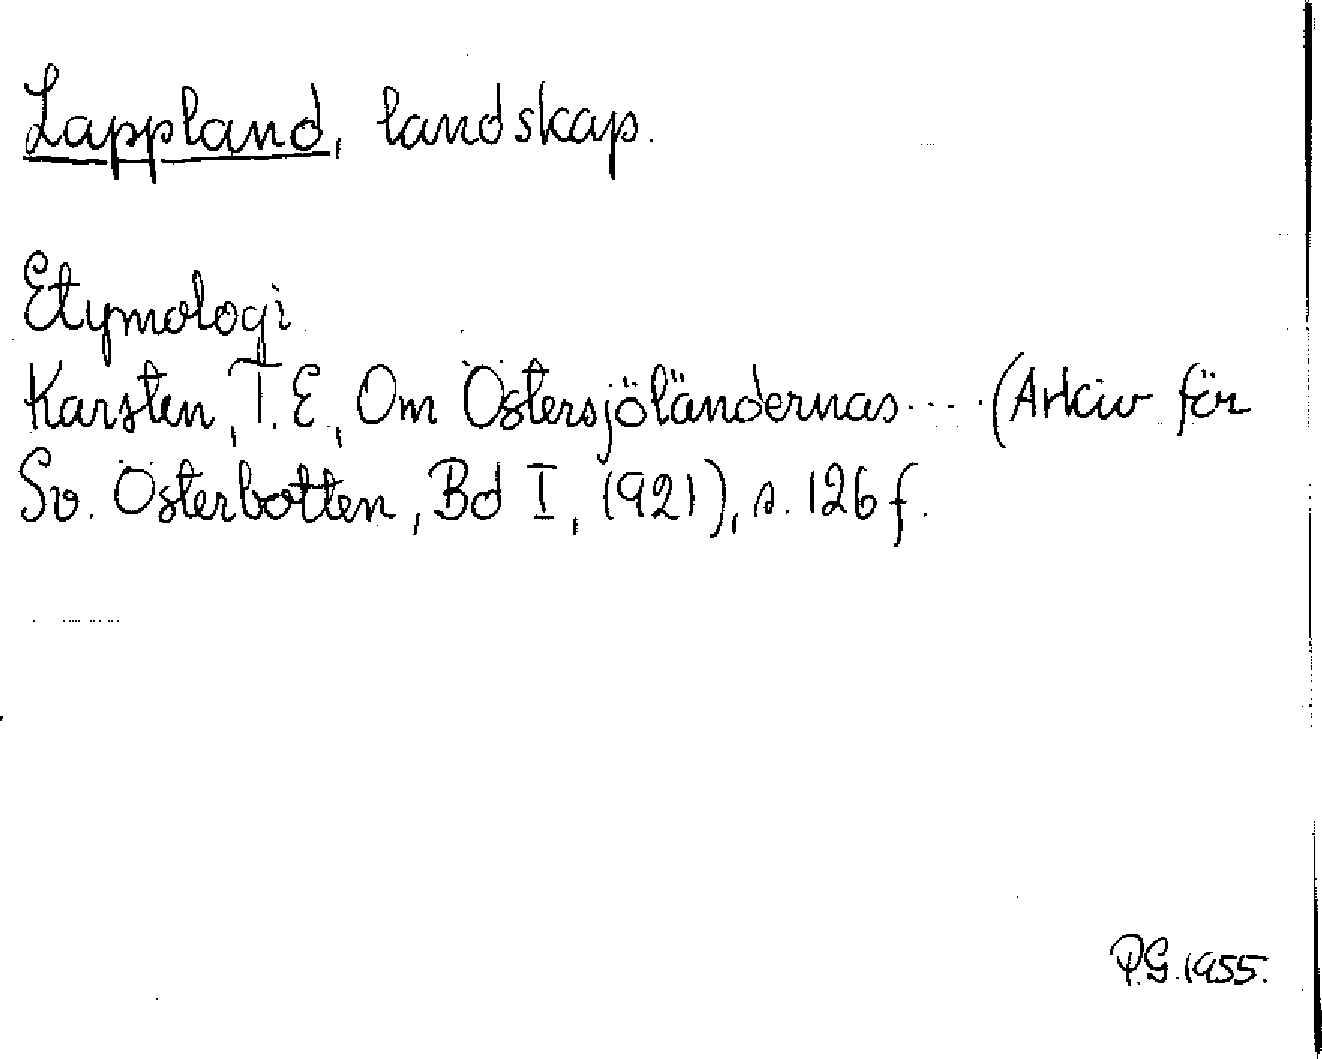 Lappland, landskap.
Etymologi
Karsten, T. E, Om Östersjöländernas.... (Arkiv för
Sv. Österbotten, Bd I, (921), s. 126 f.
P.G. 1955.